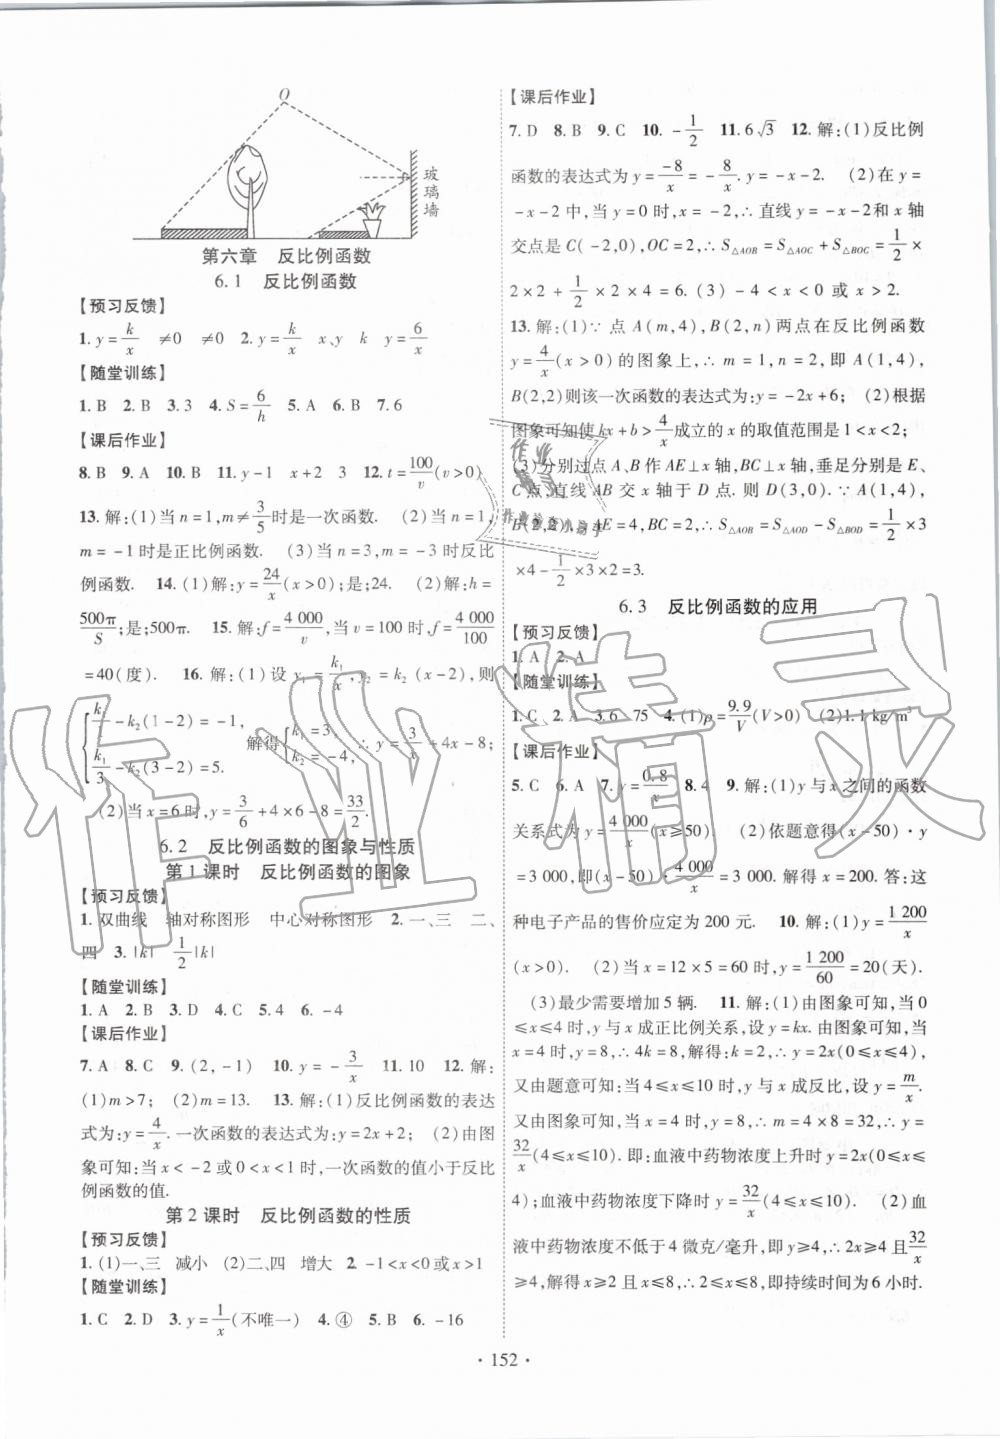 O
玻
璃
墙
第六章 反比例函数
6.1 反比例函数
【预习反馈】
1. y=k/x ≠0 ≠0 2. y=k/x x、y k y=6/x
【随堂训练】
1. B 2. B 3. 3 4. S=6/h 5. A 6. B 7. 6
【课后作业】
8. B 9. A 10. B 11. y-1 x+2 3 12. t=100/v(v>0)
13. 解:(1)当 n=1,m≠3/5时是一次函数. (2)当 n=1,
m=-1时是正比例函数. (3)当 n=3,m=-3时反比
例函数. 14. (1)解:y=24/x(x>0);是;24. (2)解:h=
500π/S;是;500π. 15. 解:f=4 000/v,当 v=100时,f=4 000/100
=40(度). 16. 解:(1)设 y₁=k₁/x,y₂=k₂(x-2),则
{k₁/1-k₂(1-2)=-1, k₁/3-k₂(3-2)=5. 解得{k₁=3, k₂=-4, ∴y=3/x+4x-8;
(2)当 x=6时,y=3/6+4×6-8=33/2.
6.2 反比例函数的图象与性质
第1课时 反比例函数的图象
【预习反馈】
1. 双曲线 轴对称图形 中心对称图形 2. 一、三 二、
四 3. |k| 1/2|k|
【随堂训练】
1. A 2. B 3. D 4. C 5. 4 6. -4
【课后作业】
7. A 8. C 9. (2,-1) 10. y=-3/x 11. 10 12. 解:
(1)m>7; (2)m=13. 13. 解:(1)反比例函数的表达
式为:y=4/x. 一次函数的表达式为:y=2x+2; (2)由图
象可知:当 x<-2或0<x<1时,一次函数的值小于反比
例函数的值.
第2课时 反比例函数的性质
【预习反馈】
1. (1)一、三 减小 (2)二、四 增大 2. -1<x<0或x>1
【随堂训练】
1. C 2. D 3. y=1/x(不唯一) 4. ④ 5. B 6. -16
【课后作业】
7. D 8. B 9. C 10. -1/2 11. 6√3 12. 解:(1)反比例
函数的表达式为 y=-8/x=-8/x. y=-x-2. (2)在 y=
-x-2中,当 y=0时,x=-2,∴直线 y=-x-2和 x 轴
交点是 C(-2,0),OC=2,∴S△AOB=S△AOC+S△BOC=1/2×
2×2+1/2×2×4=6. (3)-4<x<0 或 x>2.
13. 解:(1)∵点 A(m,4),B(2,n)两点在反比例函数
y=4/x(x>0)的图象上,∴m=1,n=2,即 A(1,4),
B(2,2)则该一次函数的表达式为:y=-2x+6; (2)根据
图象可知使 kx+b>4/x成立的 x 的取值范围是1<x<2;
(3)分别过点 A、B 作 AE⊥x 轴,BC⊥x 轴,垂足分别是 E、
C 点,直线 AB 交 x 轴于 D 点. 则 D(3,0). ∵A(1,4),
B(2,2),∴AE=4,BC=2,∴S△AOB=S△AOD-S△BOD=1/2×3
×4-1/2×3×2=3.
6.3 反比例函数的应用
【预习反馈】
1. A 2. A
【随堂训练】
1. C 2. A 3. 6 75 4. (1)ρ=9.9/V(V>0) (2)1.1 kg/m³
【课后作业】
5. C 6. A 7. y=0.8/x 8. 4 9. 解:(1)y 与 x 之间的函数
关系式为 y=4 000/x(x≥50). (2)依题意得(x-50)·y
=3 000,即(x-50)·4 000/x=3 000. 解得 x=200. 答:这
种电子产品的售价应定为 200 元. 10. 解:(1)y=1 200/x
(x>0). (2)当 x=12×5=60时,y=1 200/60=20(天).
(3)最少需要增加5辆. 11. 解:(1)由图象可知,当0
≤x≤4时,y 与 x 成正比例关系,设 y=kx. 由图象可知,当
x=4时,y=8,∴4k=8,解得:k=2,∴y=2x(0≤x≤4),
又由题意可知:当4≤x≤10时,y 与 x 成反比,设 y=m/x.
又由图象可知:当 x=4时,y=8,∴m=4×8=32,∴y=
32/x(4≤x≤10). 即:血液中药物浓度上升时 y=2x(0≤x≤
4);血液中药物浓度下降时 y=32/x(4≤x≤10). (2)血
液中药物浓度不低于4微克/毫升,即:y≥4,∴2x≥4且32/x
≥4,解得 x≥2且 x≤8,∴2≤x≤8,即持续时间为6小时.
作业精灵
· 152 ·